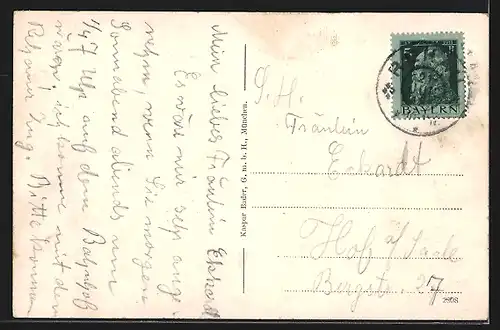 Mein liebes Fräulein Eckardt
Es wäre mir sehr ange-
nehm, wenn Sie morgen
Sonnabend abends um
1/47 Uhr auf dem Bahnhof
wären, ich komme mit dem
Zug. Bitte kommen
Kaspar Bader, G. m. b. H., München.
S. H.
Fräulein
Eckardt
Hof a/Saale
Bergstr. 27
2808
5 5
BAYERN